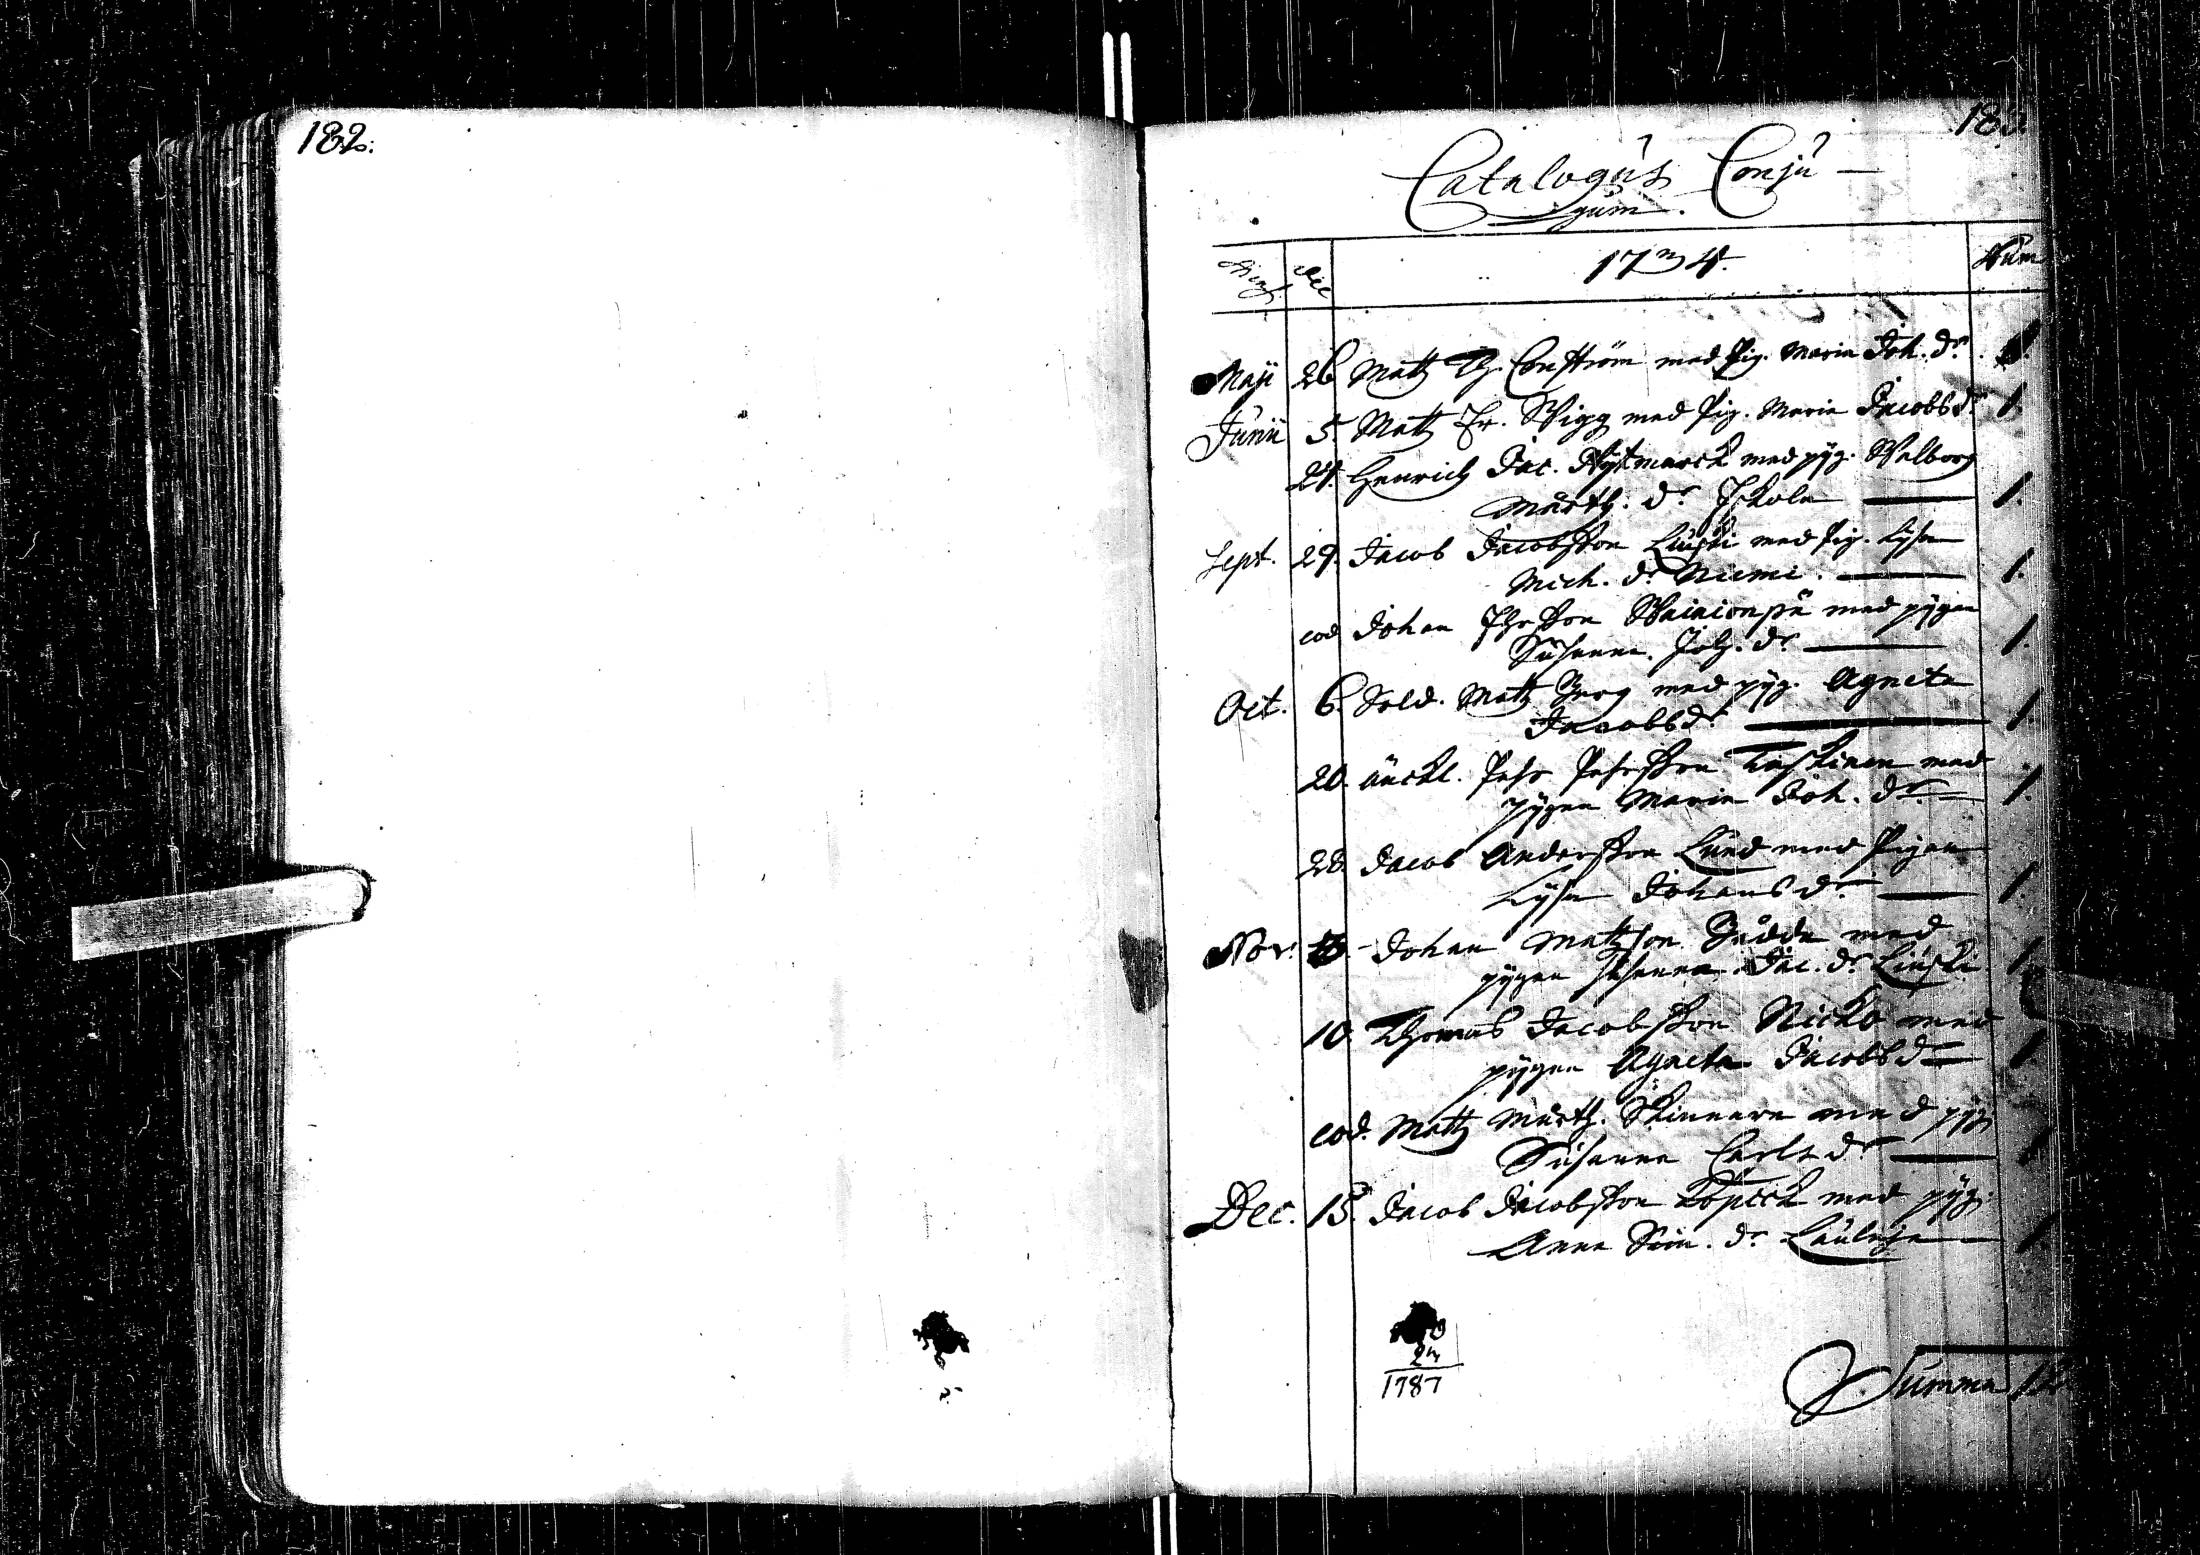 182.
Catalogus Conju-
gum.
Die
1734.
Num
Maji 26 Matts Th. Conström med pig. Maria Joh. dr. 1.
Junii 5. Matts Er. Wigg med pig. Maria Jacobs dr 1.
24. Henrich Jac. med pyg. Walborg
Mårth. dr Iskola 1.
Sept. 29. Jacob Jacobsson Liuski med pig. Lisa
Mich. dr Niemi. 1.
eod Johan med pygan
Susanna. Joh. dr 1.
Oct. 6. Sold. Matts Berg med pyg. Agneta
Jacobs dr 1.
20. änckl. Pehr Pehrsson med
pygan Maria Joh. dr. 1.
28. Jacob Andersson Lund med Pigan
Lysa Johans dr 1.
Nov. Johan Matsson med
pygan Susanna Jac. dr Liuski 1.
10. Thomas Jacobsson Nickb med
pygan Agneta Jacobs dr 1.
eod. Matts Mårth. Skinnare med pyg.
Susanna Carls dr 1
Dec. 15. Jacob Jacobsson med pyg.
Anna Sim. dr Lauluja 1.
1787
Summa